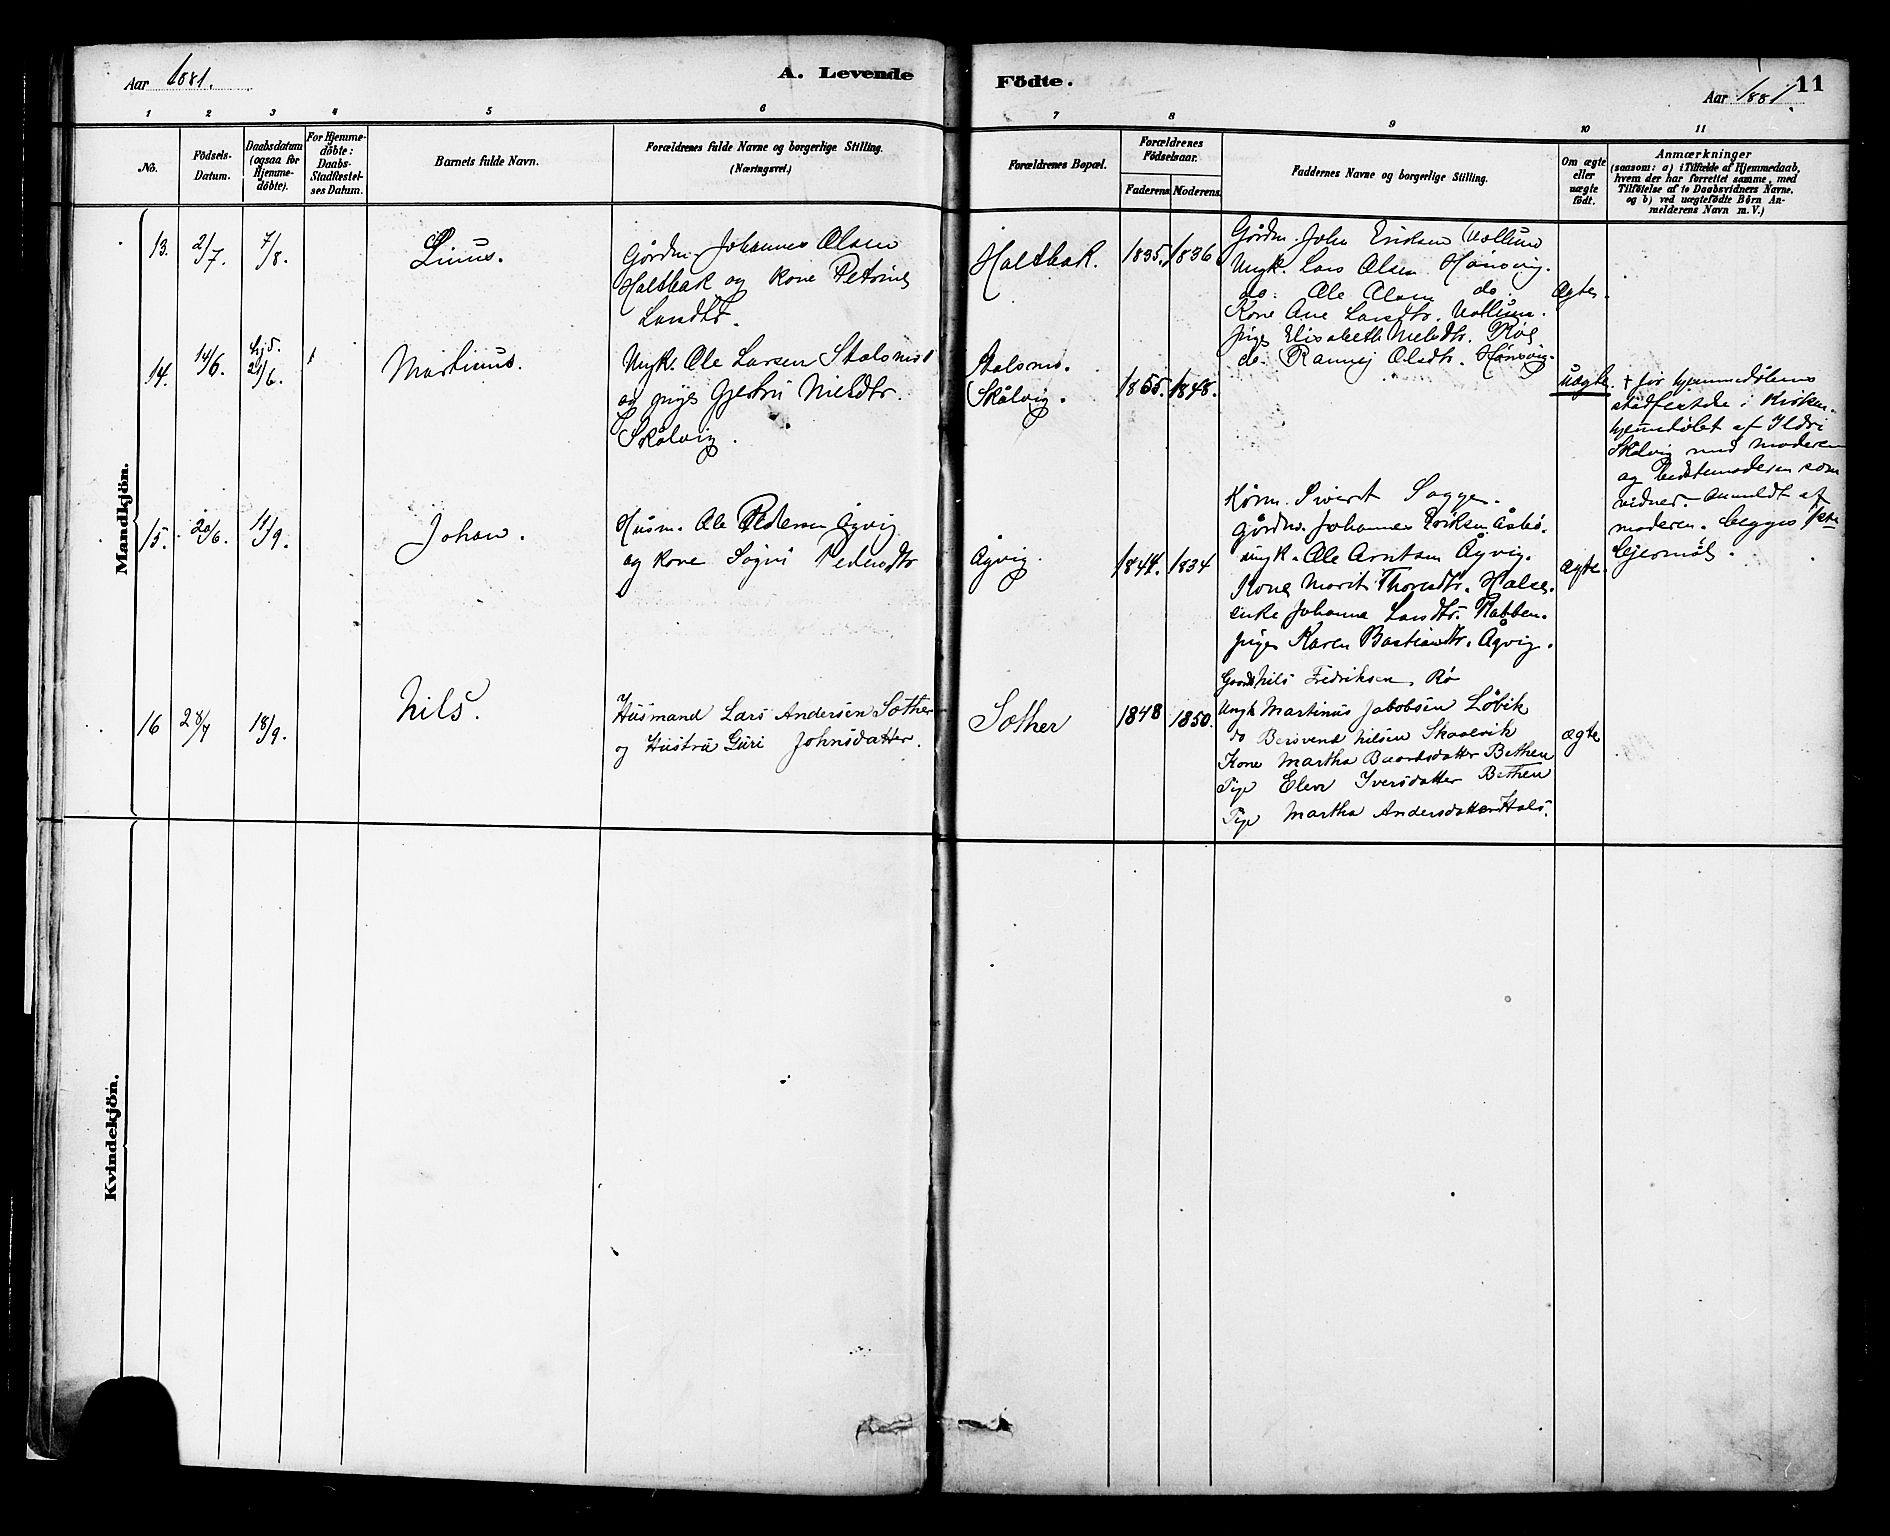 Aar 1881.
A. Levende
Födte.
Aar 1881.
11
1
2
3
4
5
6
7
8
9
10
11
No.
Födsels-
Datum.
Daabsdatum
(ogsaa for
Hjemme-
döbte).
For Hjemme-
döbte:
Daabs-
Stadfæstel-
ses Datum.
Barnets fulde Navn.
Forældrenes fulde Navne og borgerlige Stilling.
(Næringsvei.)
Forældrenes Bopæl.
Forældrenes
Födselsaar.
Faderens.
Moderens.
Faddernes Navne og borgerlige Stilling.
Om ægte
eller
uægte
födt.
Anmærkninger
(saasom: a) i Tilfælde af Hjemmedaab,
hvem der har forrettet samme, med
Tilföielse af to Daabsvidners Navne,
og b) ved uægtefödte Börn An-
melderens Navn m. V.)
Mandkjön.
13.
2/7.
7/8.
Linus.
Gårdm. Johannes Olsen
Holtbak og kone Petrine
Larsdtr.
Holtbak.
1835.
1836
Gårdm. John Eriksen Vollum
Ungk. Lars Olsen Hønsvig.
do. Ole Olsen do.
Kone Ane Larsdtr. Vollum.
Pige Elisabeth Nielsdtr. Røe
do. Rannej Olsdtr. Hønsvig.
ægte.
14.
14/6.
hjd.
21/6.
Martinus.
Ungk. Ole Larsen Stolsmo
og pige Gjertru Nielsdtr.
Skålvig.
Stolsmo.
Skålvig.
1855.
1848.
uægte
+ før hjemmedøbens
stadfestelse i kirken.
hjemmedøbt af Ildri
Skålvig med moderen
og bedstemoderen som
vidner. Anmeldt af
moderen. begges 1ste
lejermål.
15.
20/6.
11/9.
Johan.
Husm. Ole Pedersen Ågvig
og kone Sigri Pedersdtr
Ågvig.
1844.
1834
Sivert Sogge.
Gårdm. Johannes Eriksen Åsbø.
ungk. Ole Arntsen Ågvig.
Kone Marit Thoresdtr. Halse.
enke Johanna Larsdtr. Rabben.
pige Karen Bastiansdtr. Ågvig.
ægte.
16
28/7
18/9.
Nils.
Husmand Lars Andersen Sother
og Hustru Guri Johnsdatter.
Sother
1848
1850.
Gaardm Nils Fredriksen Rø
Ungk Martinus Jakobsen Løvik
do Bersvend Nilsen Skaalvik
Kone Martha Baardsdatter Bethen
Pige Elen Iversdatter Bethen
Pige Martha Andersdatter Hals.
ægte
Kvindekjön.